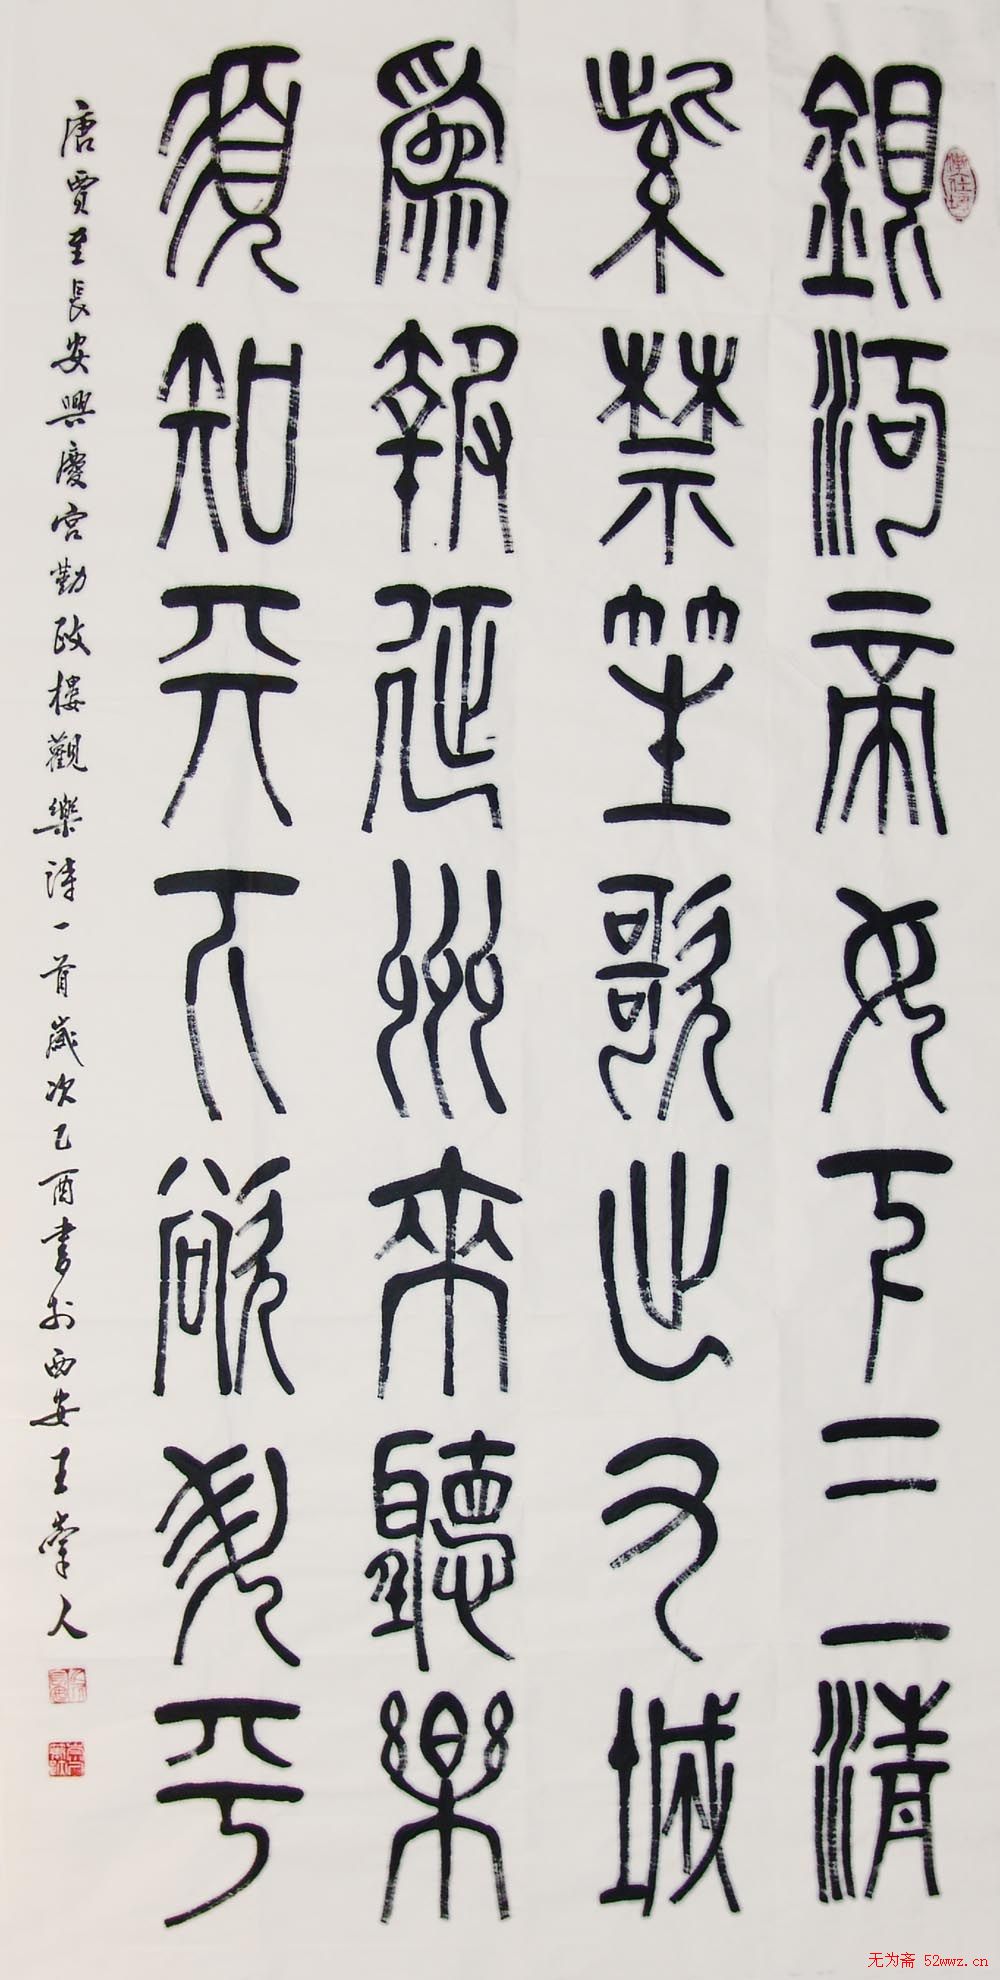 銀河帝女下三清
紫禁笙歌出九城
為報延州來聽樂
須知天下欲升平
唐賈至長安興慶宮勤政樓觀樂詩一首歲次乙酉書於西安王人
无为斋 52wwz.cn